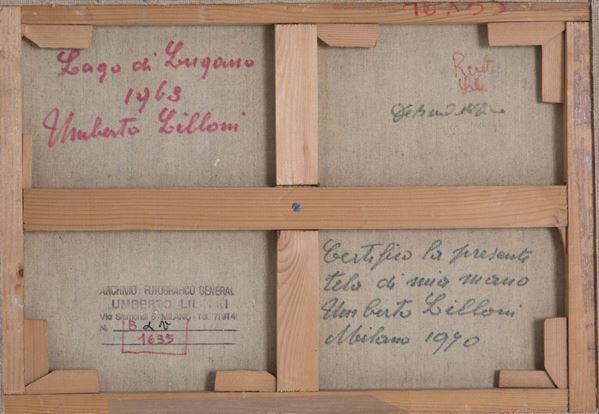 Lago di Lugano
1963
Umberto Lilloni
ARCHIVIO FOTOGRAFICO GENERAL
UMBERTO LILLONI
MILANO - Tel.
N. B
1635
Certifico la presente
tela di mia mano
Umberto Lilloni
Milano 1970